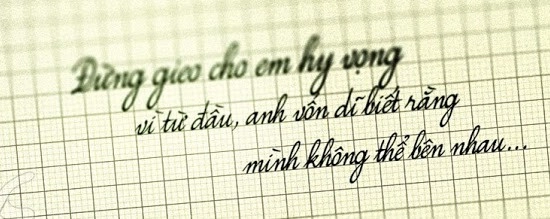 Đừng gieo cho em hy vọng
vì từ đầu, anh vốn dĩ biết rằng
mình không thể bên nhau...